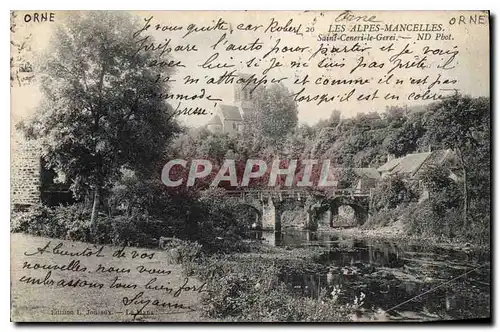 ORNE
Orne
ORNE
20 LES ALPES-MANCELLES.
Saint-Ceneri-le-Gerei. — ND Phot.
J'vous quitte, car Robert
prépare l'auto pour partir et je vais
avec lui si je ne suis pas prête il
m'attraper et comme il n'est pas
commode
lorsqu'il est en colère
CPARAMA
A bientôt de vos
nouvelles, nous vous
embrassons tous bien fort
Suzanne
Edition L. Jouaux. - Le Mans